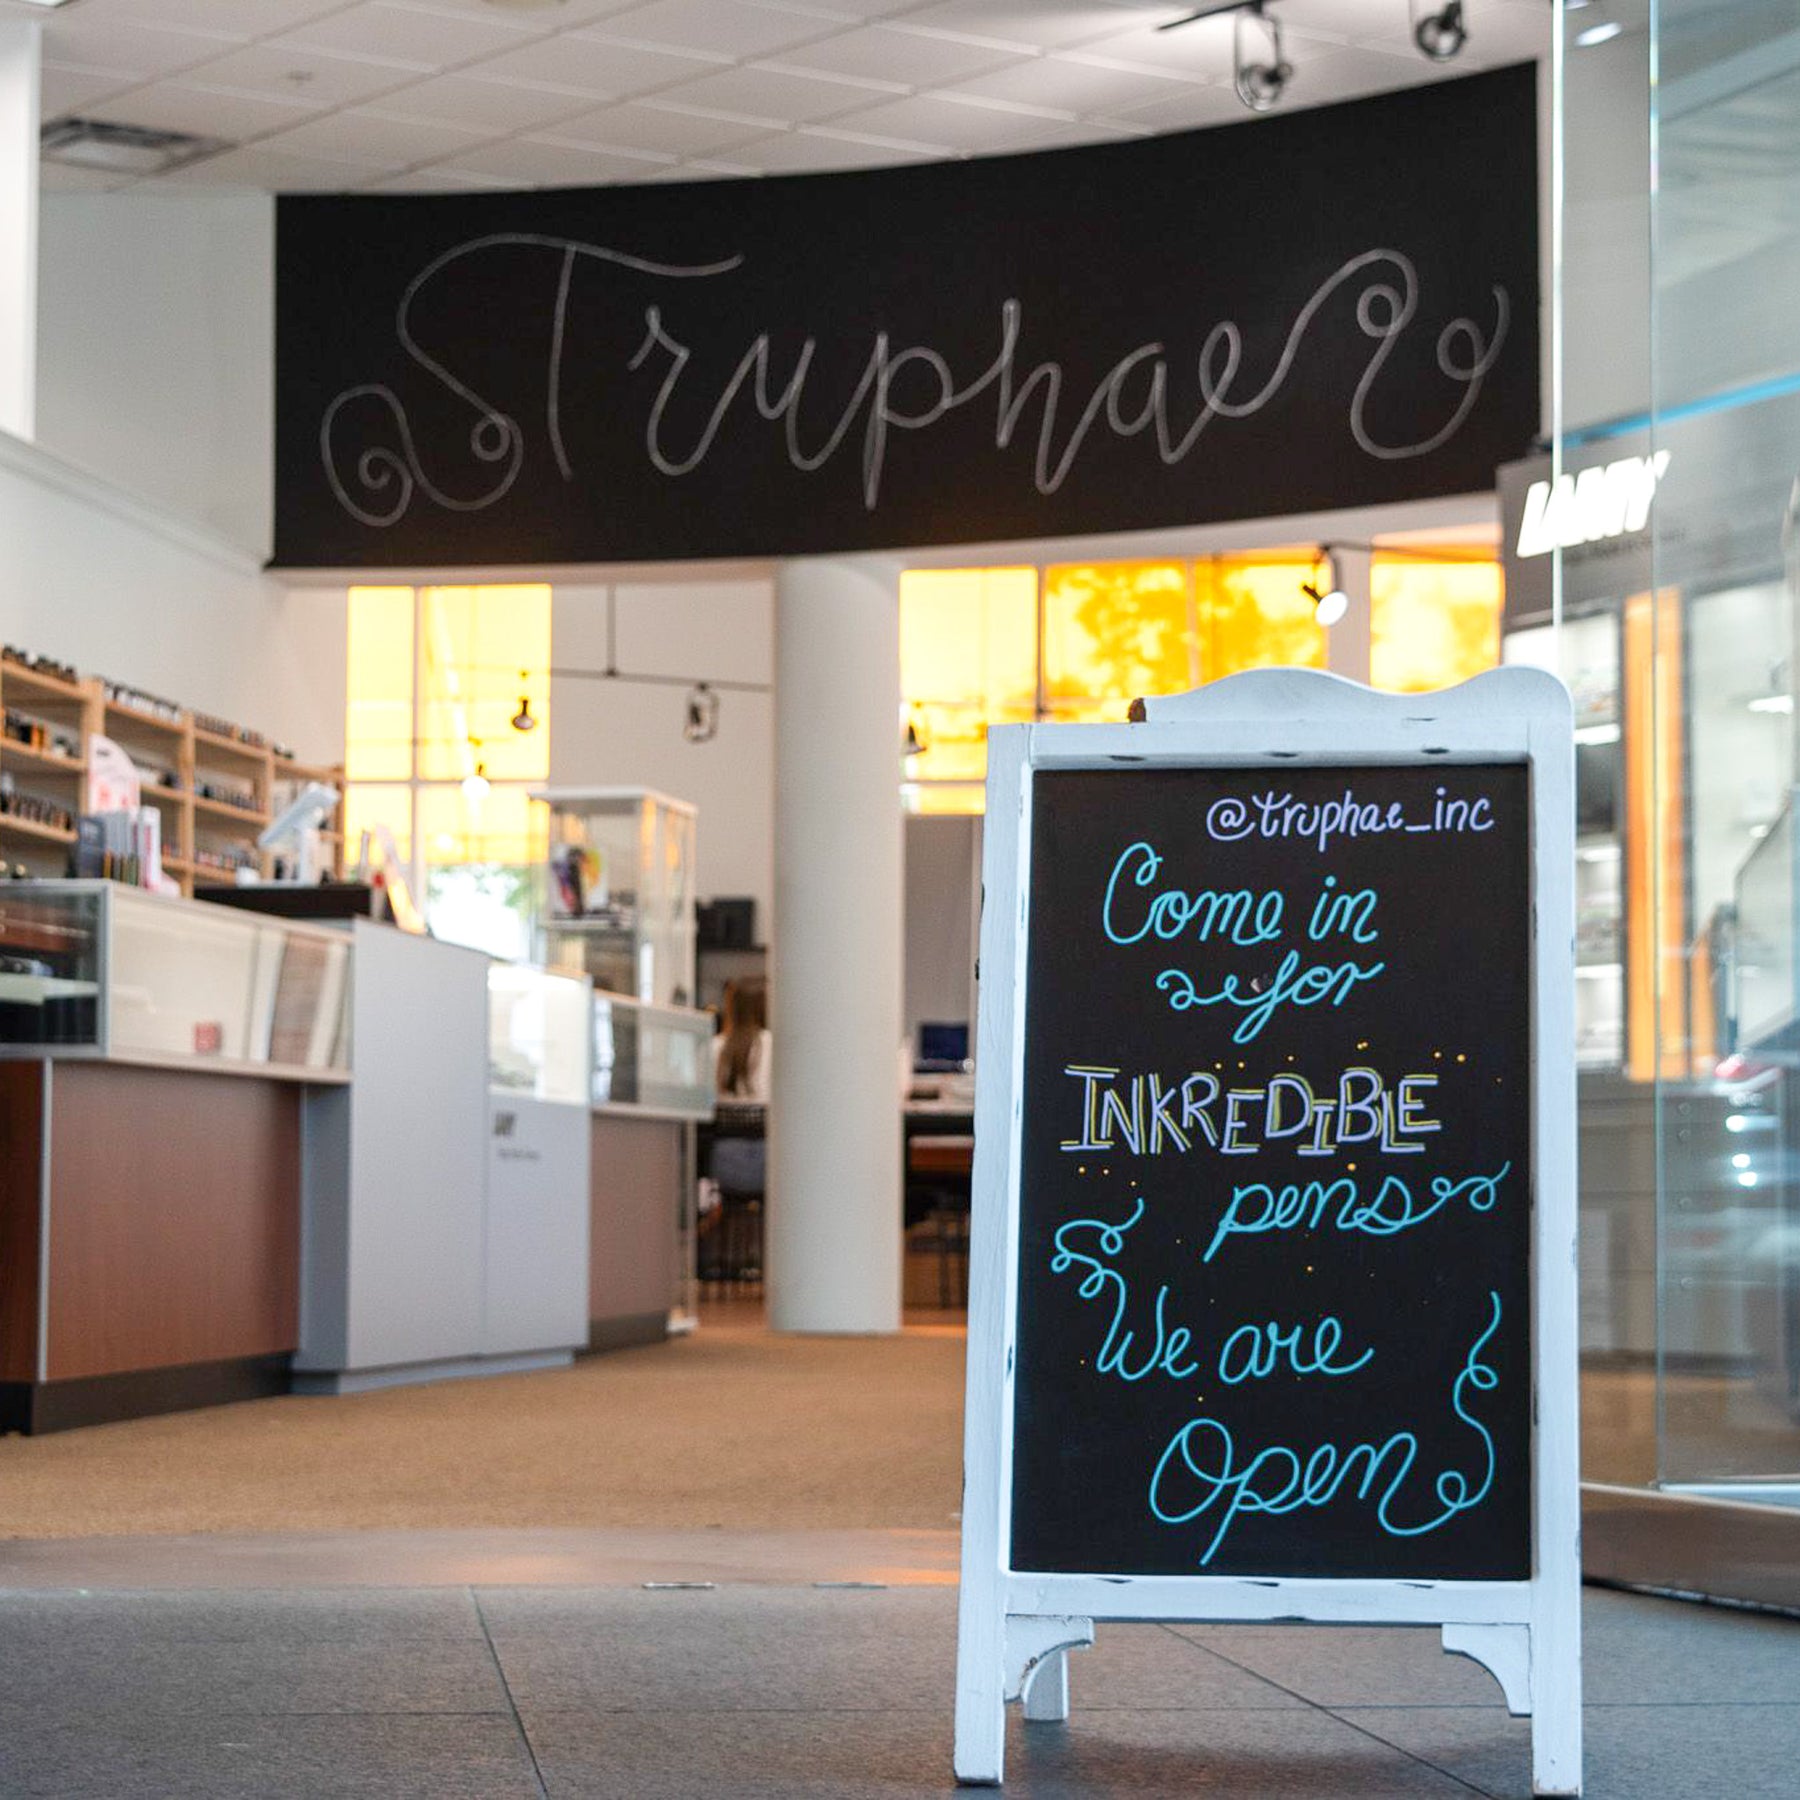 Truphae
LAMY
@truphae_inc
Come in
for
INKREDIBLE
pens
We are
Open